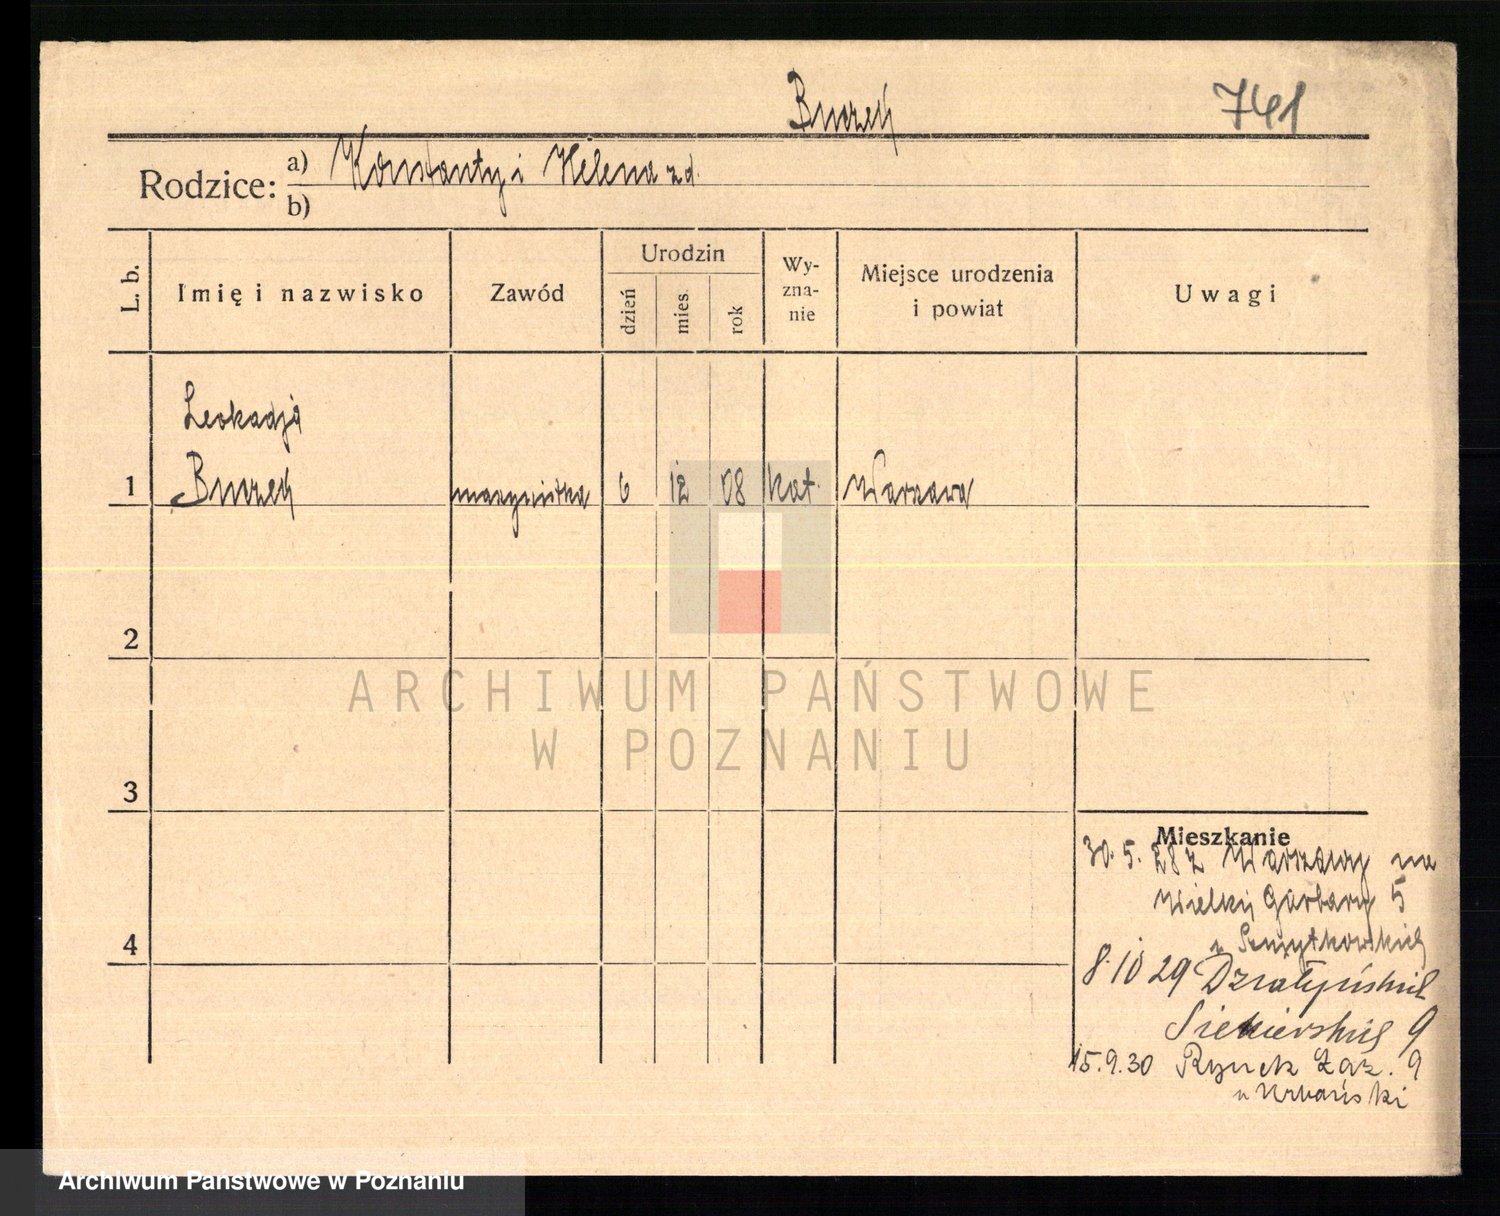 Buczek
741
Rodzice: a) Konstanty i Helena z d.
b)
L. b. Imię i nazwisko Zawód Urodzin dzień mies. rok Wy-zna-nie Miejsce urodzenia i powiat Uwagi
Leokadja
1 maszynistka 6 12 08 kat. Warszawa
2
ARCHIWUM PAŃSTWOWE
W POZNANIU
3
Mieszkanie
30.5.28 z Warszawy na
Wielkie Garbary 5
4
8.10 29 Działyńskich
9
15.9.30 Rynek Łaz. 9
u Urbański
Archiwum Państwowe w Poznaniu